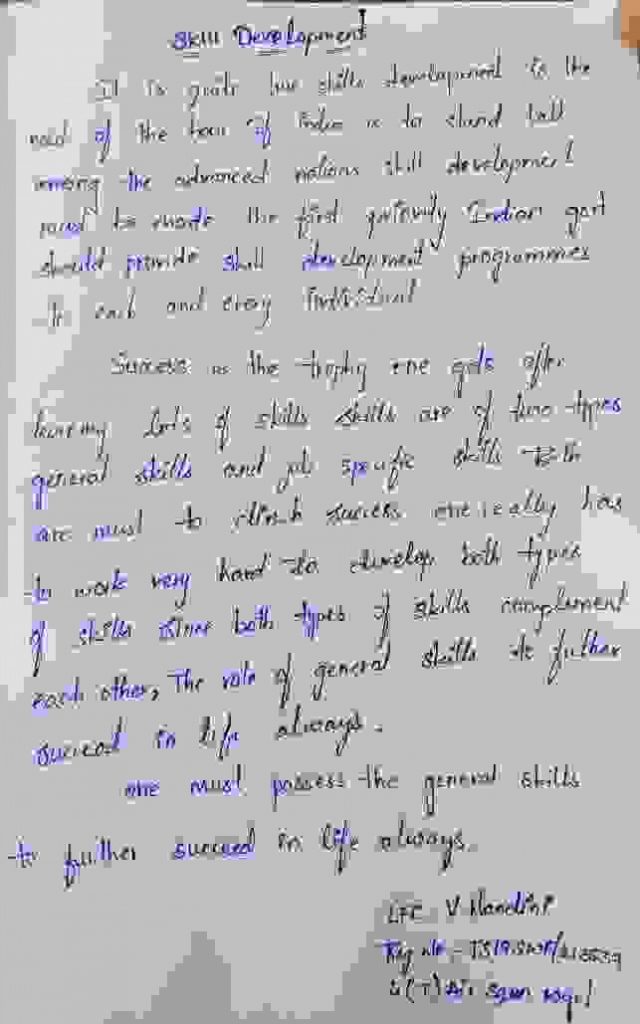 Skill Development
It is quite true skills development is the
need of the hour if India is to stand tall
among the advanced nations skill development
must be made the first priority Indian govt
should provide skill development programmes
to each and every individual
Success is the trophy one gets after
learning lots of skills skills are of two types
general skills and job specific skills Both
are must to clinch success one really has
to work very hard to develop both types
of skills since both types of skills complement
each other, The role of general skills to futher
succeed in life always.
one must possess the general skills
to further succeed in life always.
V. Nandini
Reg No -